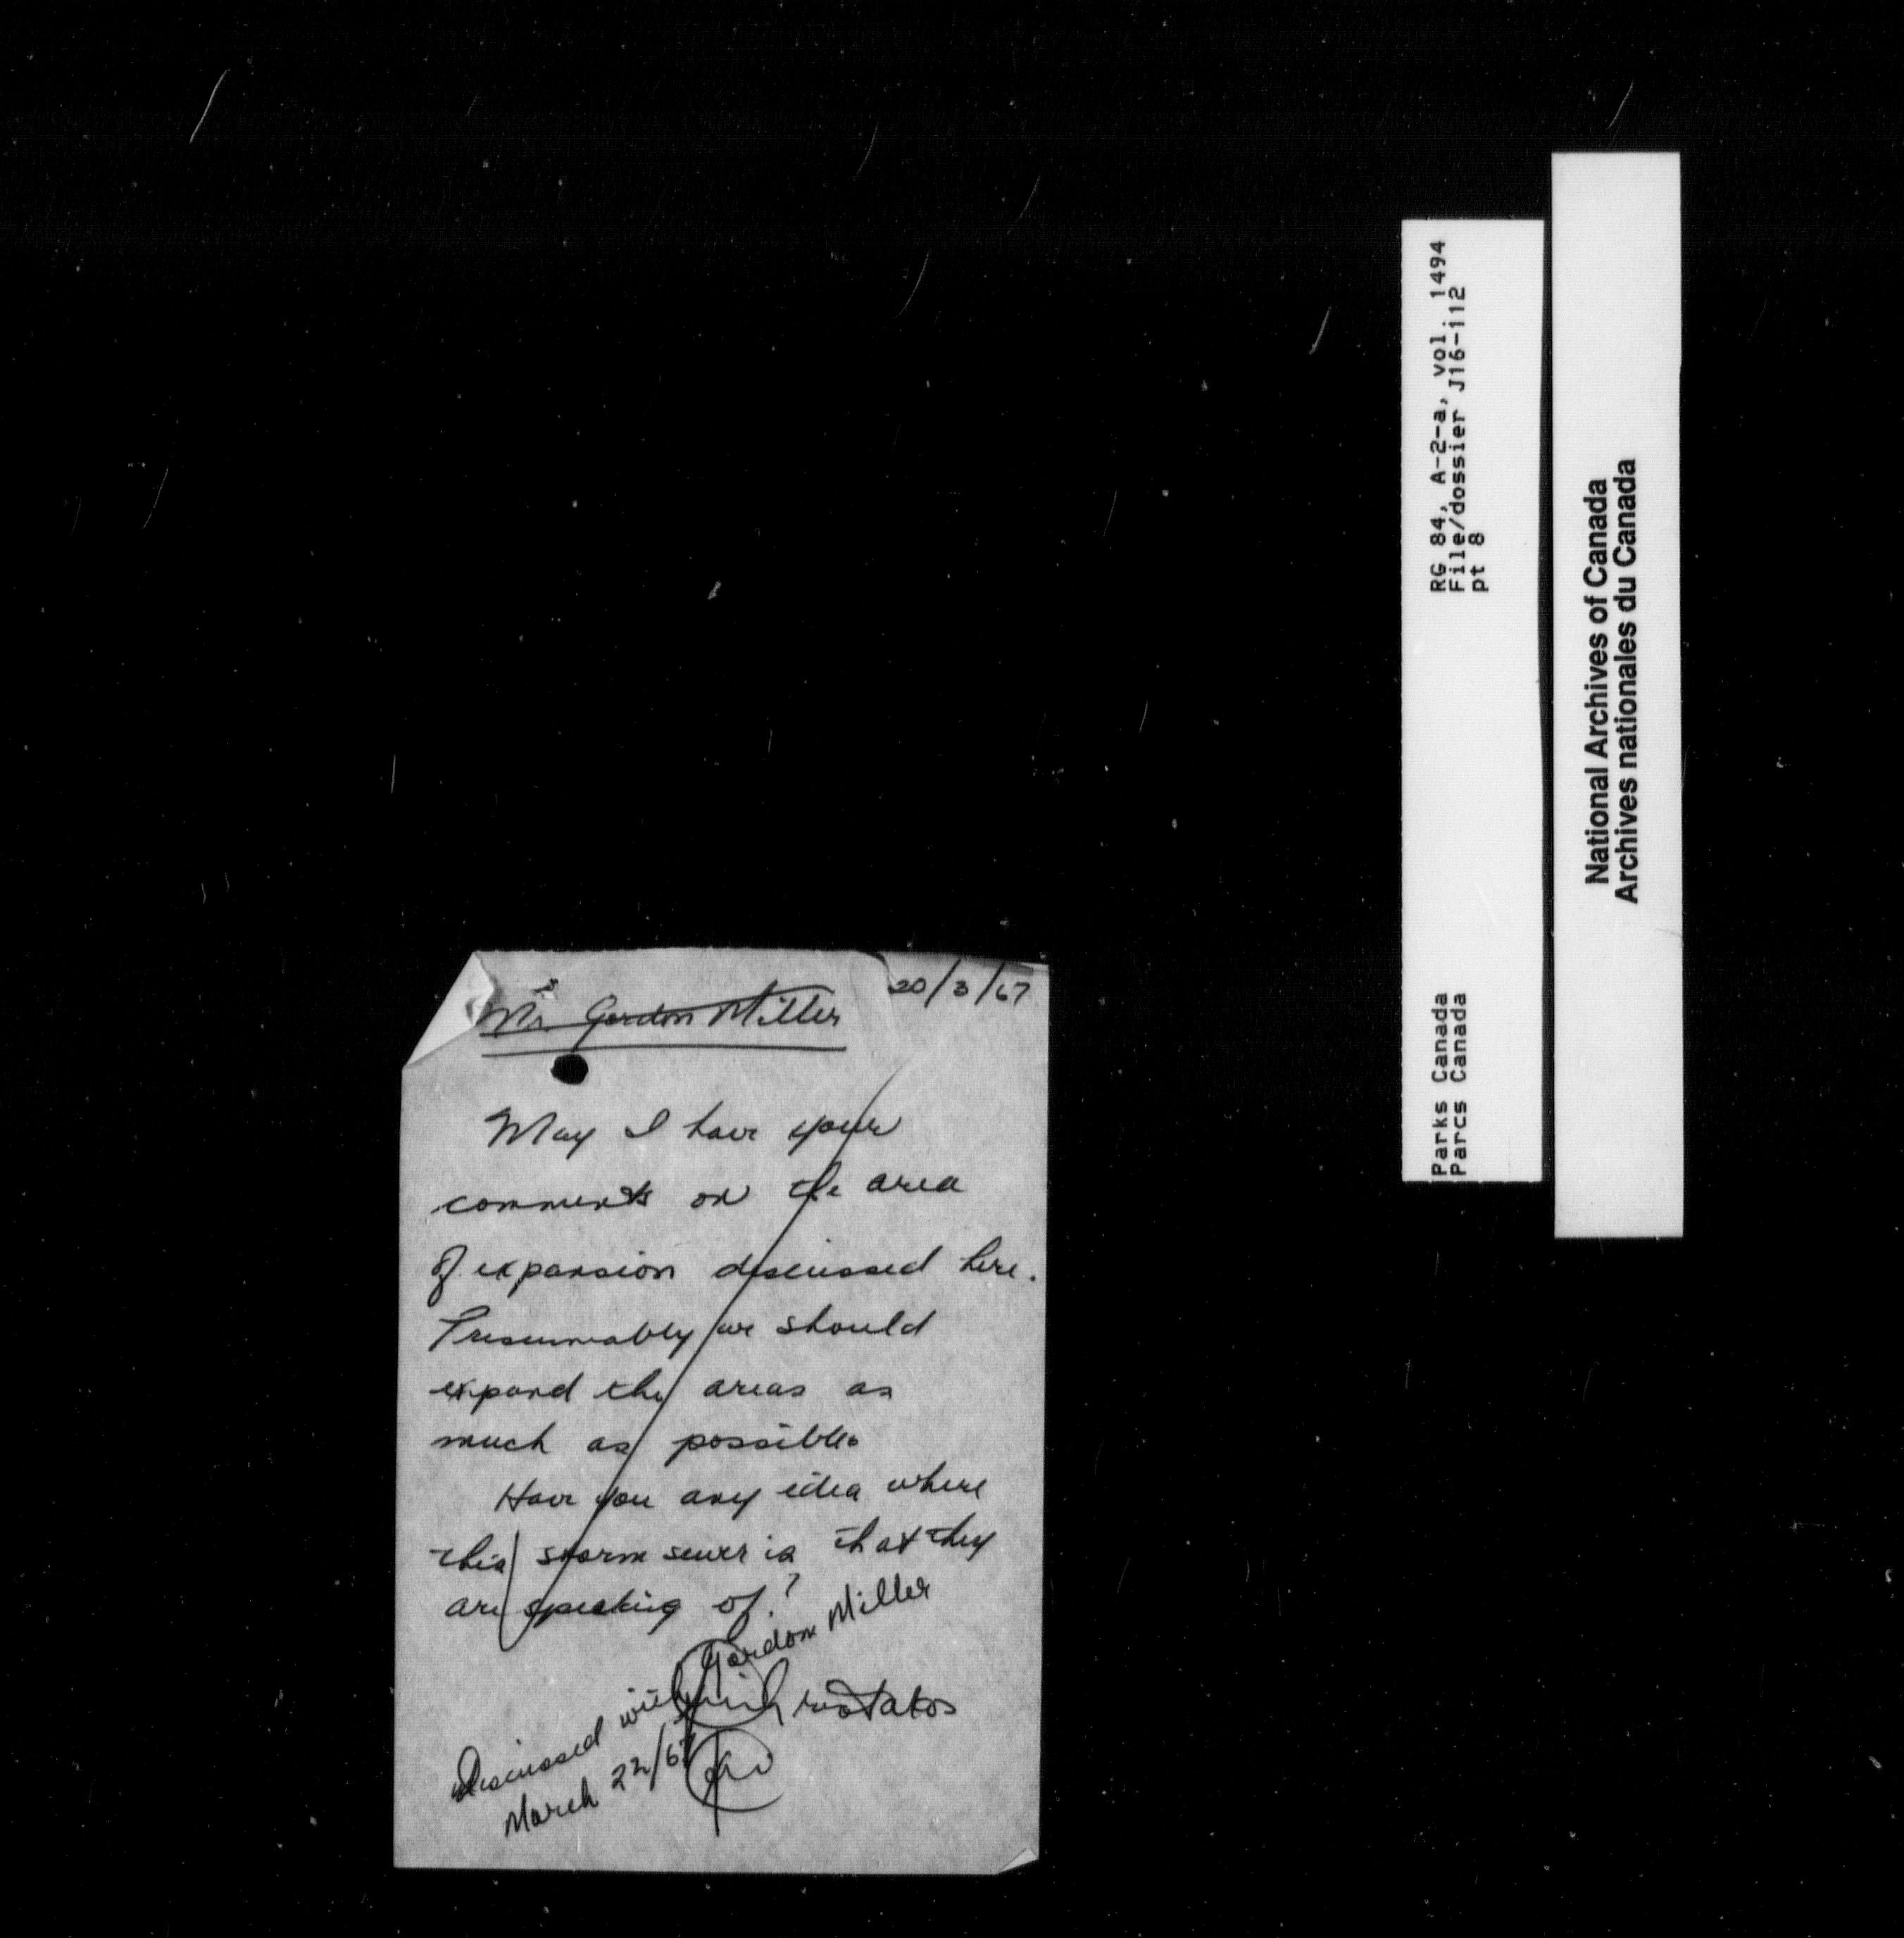 20/3/67
Mr. Gordon Miller
May I have your
comments on the area
of expansion discussed here.
Presumably we should
expand the areas as
much as possible.
Have you any idea where
this storm sewer is that they
are speaking of?
Discussed with Gordon Miller
March 22/67
RG 84, A-2-a, vol. 1494
File/dossier J16-112
pt 8
Parks Canada
Parcs Canada
National Archives of Canada
Archives nationales du Canada